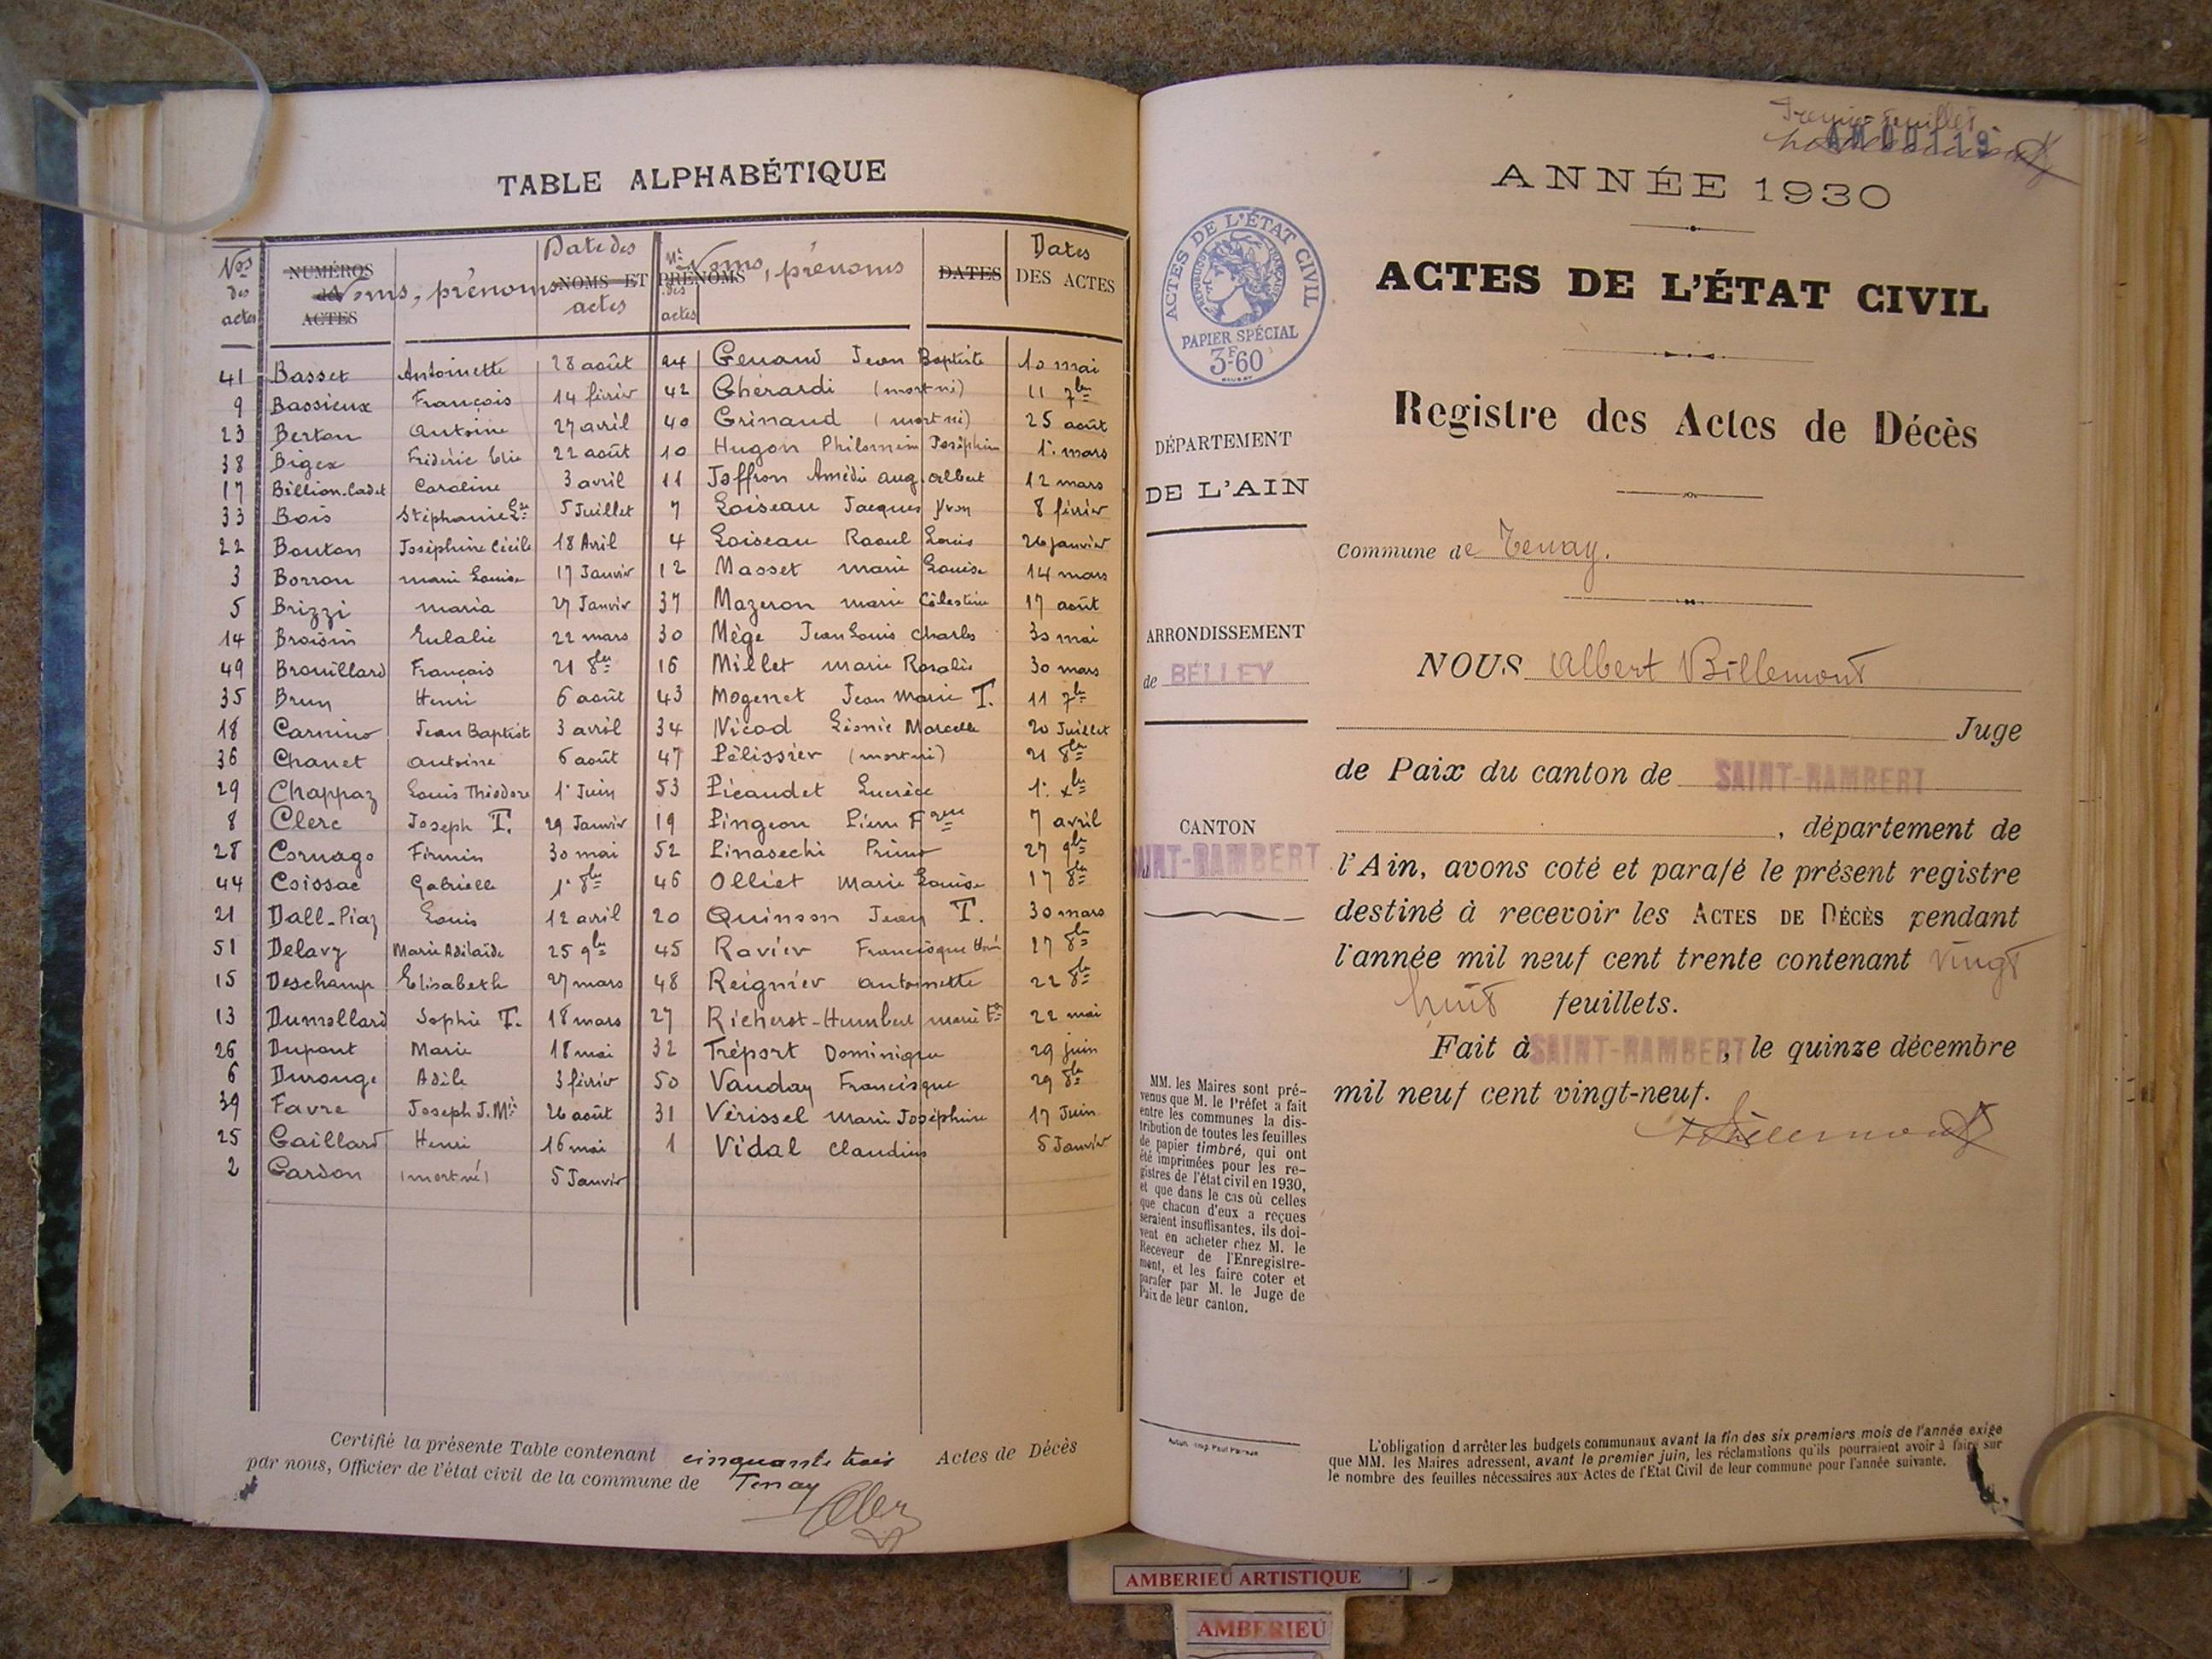 TABLE ALPHABÉTIQUE
Nos des actes | NUMÉROS des ACTES Noms, prénoms | Date des NOMS ET actes | Nos des actes | PRÉNOMS Noms, prénoms | DATES | Dates DES ACTES
41 Basset Antoinette 28 août | 24 Genand Jean Baptiste 10 mai
9 Bassieux François 14 février | 42 Ghérardi (mort né) 11 7bre
23 Berton Antoine 27 avril | 40 Grinand (mort né) 25 août
38 Bigex Frédéric Elie 22 août | 10 Hugon Philomein Joséphine 1er mars
17 Billion-Cadet Caroline 3 avril | 11 Joffron Amédée aug. albert 12 mars
33 Bois Stéphanie Lse 5 Juillet | 7 Loiseau Jacques Yvon 8 février
22 Bouton Joséphine Cécile 18 Avril | 4 Loiseau Raoul Louis 26 janvier
3 Borron marie Louise 17 Janvier | 12 Masset marie Louise 14 mars
5 Brizzi maria 27 Janvier | 37 Mazeron marie Célestine 17 août
14 Broisin Eulalie 22 mars | 30 Mège Jean Louis Charles 30 mai
49 Brouillard François 21 8bre | 16 Millet marie Rosalie 30 mars
35 Brun Henri 6 août | 43 Mogenet Jean Marie T. 11 7bre
18 Carnino Jean Baptist 3 avril | 34 Nicod Léonie Marcelle 20 Juillet
36 Chanet antoine 6 août | 47 Pélissier (mort né) 21 8bre
29 Chappaz Louis Théodore 1er Juin | 53 Picaudet Lucrèce 1er xbre
8 Clerc Joseph T. 29 Janvier | 19 Pingeon Pierre Fçois 7 avril
28 Cornago Firmin 30 mai | 52 Pinasechi Primo 27 9bre
44 Coissac Gabrielle 1er 8bre | 46 Olliet Marie Louise 17 8bre
21 Dall-Piaz Louis 12 avril | 20 Quinson Jean T. 30 mars
51 Delavy Marie Adélaïde 25 9bre | 45 Ravier Francisque Honé 17 8bre
15 Deschamp Elisabeth 27 mars | 48 Reignier antoinette 22 8bre
13 Dumollard Sophie T. 18 mars | 27 Richerot-Humbert marie 22 mai
26 Dupont Marie 18 mai | 32 Tréport Dominique 29 juin
6 Durouge Adèle 3 février | 50 Vauday Francisque 29 8bre
39 Favre Joseph J. Mie 26 août | 31 Vérissel Marie Joséphine 17 Juin
25 Gaillard Henri 16 mai | 1 Vidal Claudius 5 Janvier
2 Gardon (mort né) 5 Janvier
Certifié la présente Table contenant cinquante trois Actes de Décès
par nous, Officier de l'état civil de la commune de Tenay
Premier feuillet
AM00119
ANNÉE 1930
ACTES DE L'ÉTAT CIVIL
RÉPUBLIQUE FRANÇAISE
PAPIER SPÉCIAL
3F60
ACTES DE L'ÉTAT CIVIL
Registre des Actes de Décès
DÉPARTEMENT
DE L'AIN
ARRONDISSEMENT
de BELLEY
CANTON
SAINT-RAMBERT
MM. les Maires sont pré-
venus que M. le Préfet a fait
entre les communes la dis-
tribution de toutes les feuilles
de papier timbré, qui ont
été imprimées pour les re-
gistres de l'état civil en 1930,
et que dans le cas où celles
que chacun d'eux a reçues
seraient insuffisantes, ils doi-
vent en acheter chez M. le
Receveur de l'Enregistre-
ment, et les faire coter et
parafer par M. le Juge de
Paix de leur canton.
Commune de Tenay.
NOUS Albert Billemont
Juge
de Paix du canton de SAINT-RAMBERT
, département de
l'Ain, avons coté et parafé le présent registre
destiné à recevoir les ACTES DE DÉCÈS pendant
l'année mil neuf cent trente contenant vingt
huit feuillets.
Fait à SAINT-RAMBERT, le quinze décembre
mil neuf cent vingt-neuf.
L'obligation d'arrêter les budgets communaux avant la fin des six premiers mois de l'année exige
que MM. les Maires adressent, avant le premier juin, les réclamations qu'ils pourraient avoir à faire sur
le nombre des feuilles nécessaires aux Actes de l'Etat Civil de leur commune pour l'année suivante.
AMBERIEU ARTISTIQUE
AMBERIEU